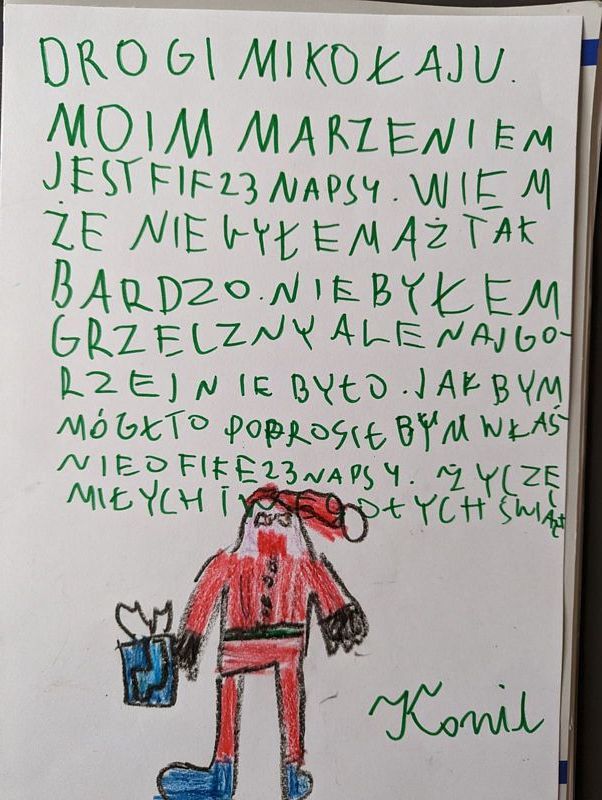 DROGI MIKOŁAJU.
MOIM MARZENIEM
JEST FIF23 NAPS4. WIEM
ŻE NIE BYŁEM AŻ TAK
BARDZO. NIE BYŁEM
GRZECZNY ALE NAJGO-
RZEJ NIE BYŁO. JAK BYM
MÓGŁ TO POPROSIĆ BYM WŁAŚ-
NIE O FIFE23 NAPS4. ŻYCZĘ
MIŁYCH I ŚWIĄT
Konil